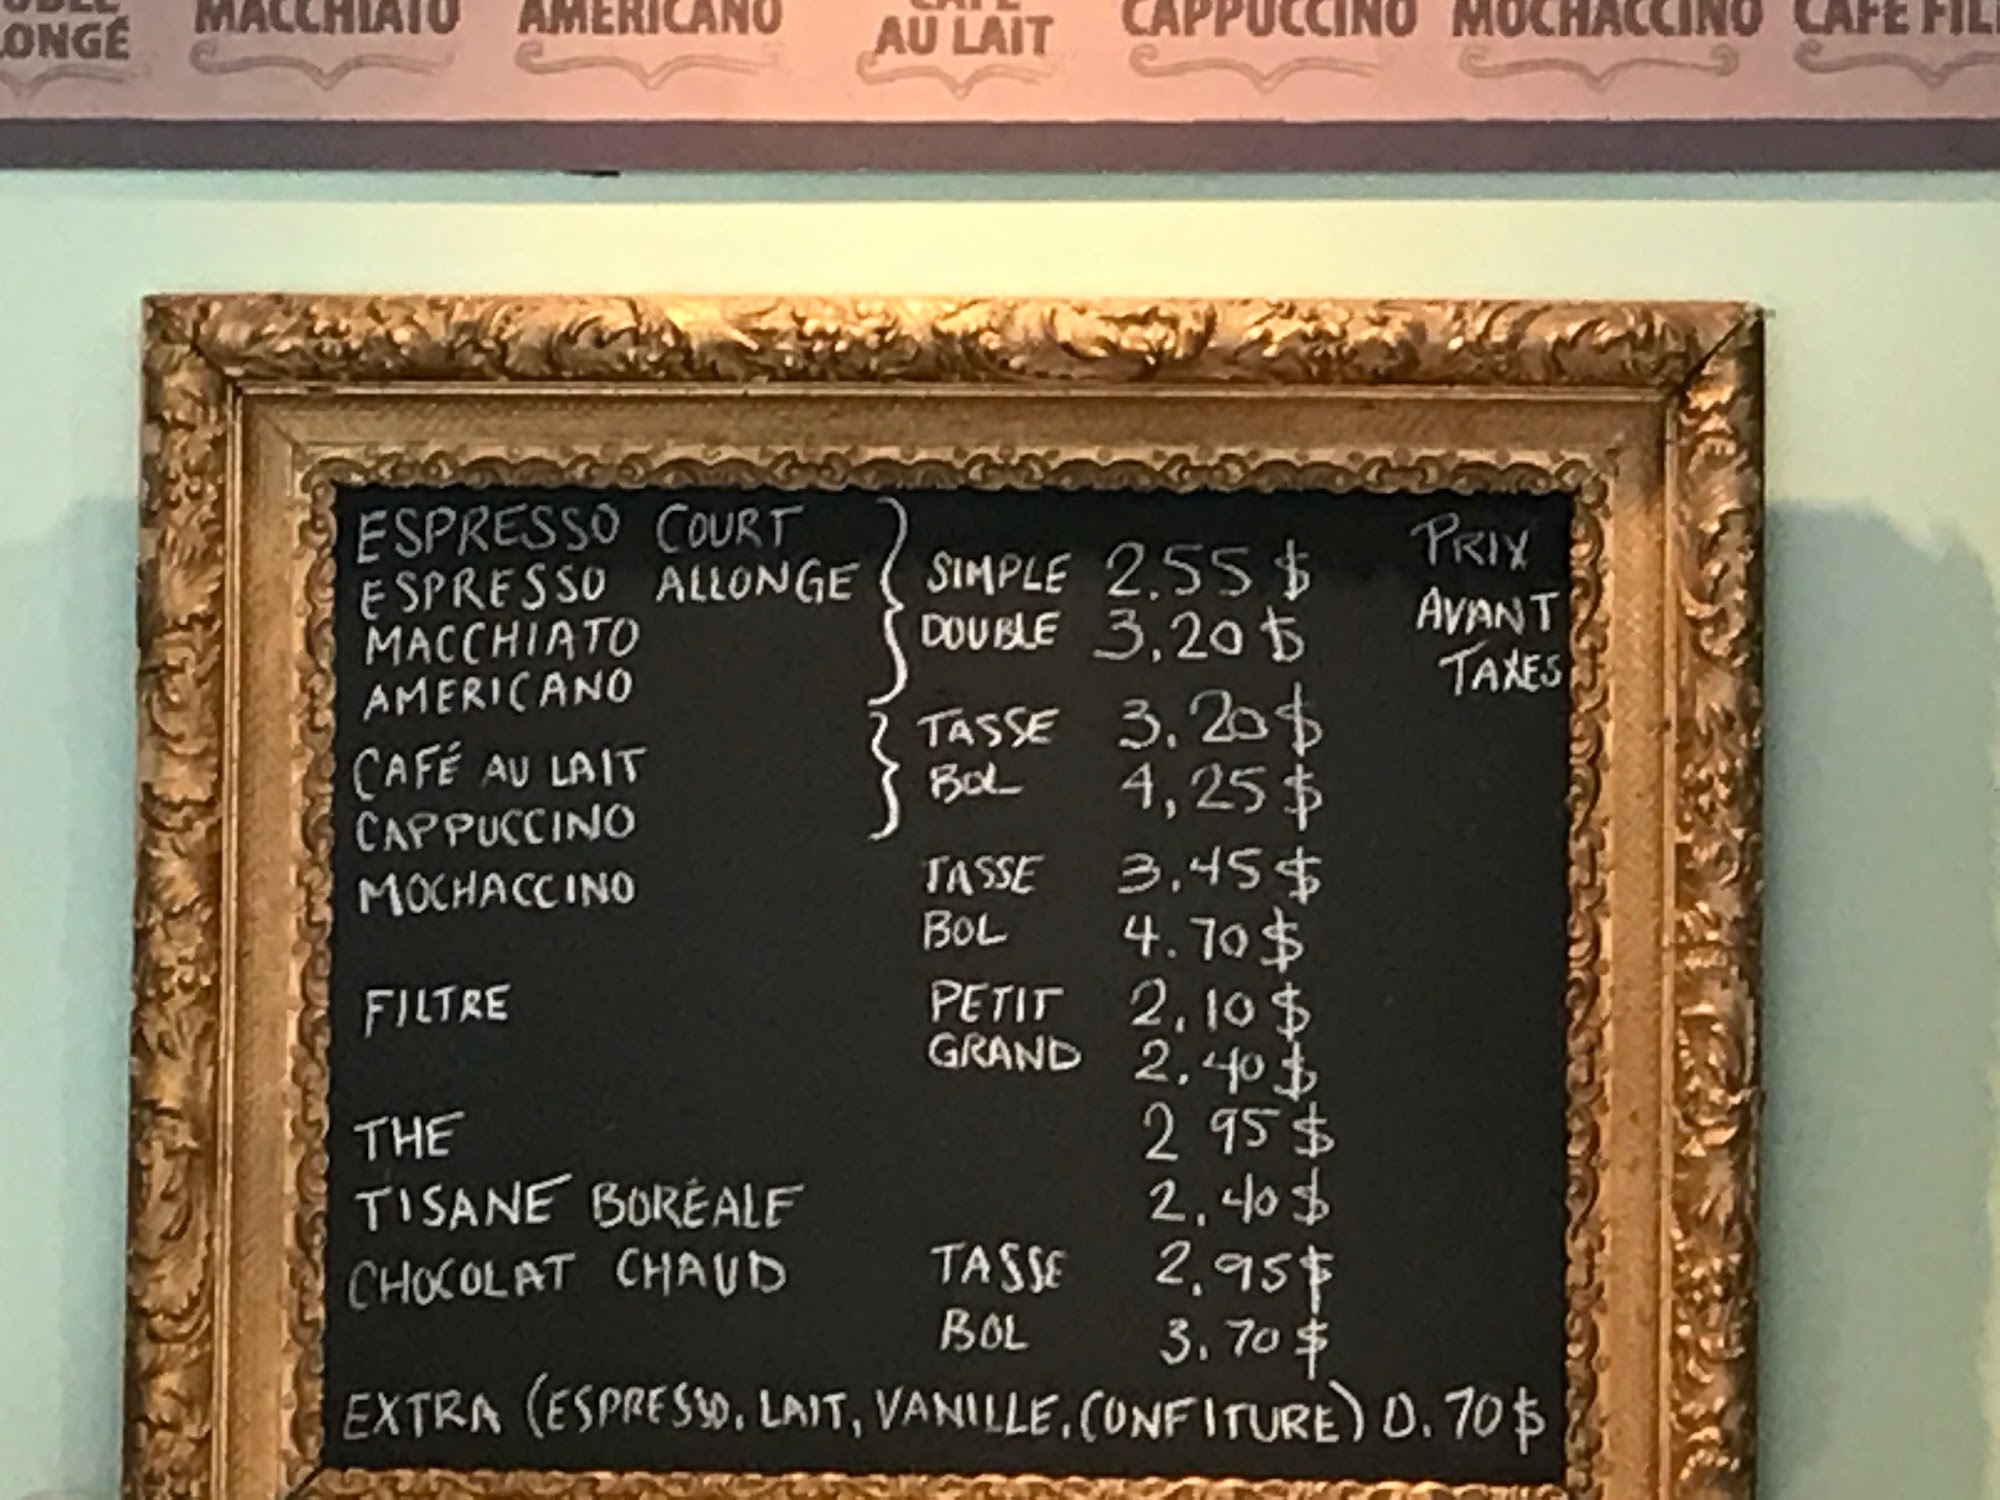 MACCHIATO AMERICANO AU LAIT CAPPUCCINO MOCHACCINO
ESPRESSO COURT
ESPRESSO ALLONGE
MACCHIATO
AMERICANO
SIMPLE 2.55 $
DOUBLE 3,20 $
PRIX
AVANT
TAXES
CAFÉ AU LAIT
CAPPUCCINO
TASSE 3.20 $
BOL 4,25 $
MOCHACCINO TASSE 3.45 $
BOL 4.70 $
FILTRE PETIT 2.10 $
GRAND 2.40 $
THE 2 95 $
TISANE BORÉALE 2.40 $
CHOCOLAT CHAUD TASSE 2.95 $
BOL 3.70 $
EXTRA (ESPRESSO, LAIT, VANILLE, CONFITURE) 0.70 $